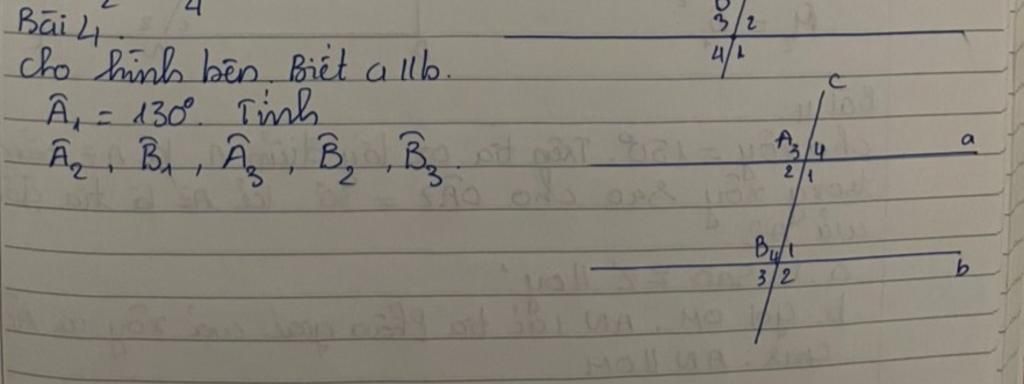 Bài 4.
Cho hình bên. Biết a // b.
Â₁ = 130°. Tính
Â₂, B̂₁, Â₃, B̂₂, B̂₃.
3 2
4 1
c
A 3 4 a
2 1
B 4 1
3 2 b